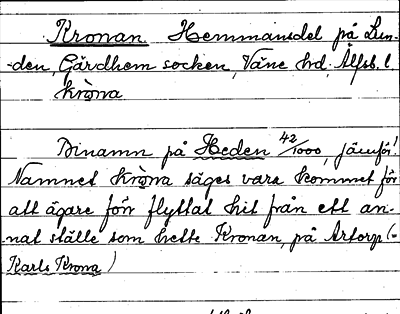 Kronan Hemmansdel på Lun-
den, Gärdhem socken, Väne hd. Älfsb. l.
kròna
Binamn på Heden 42/1000, jämför!
Namnet kròna säges vara kommet för
att ägare förr flyttat hit från ett an-
nat ställe som hette Kronan, på Artorp (-
Karls Krona)